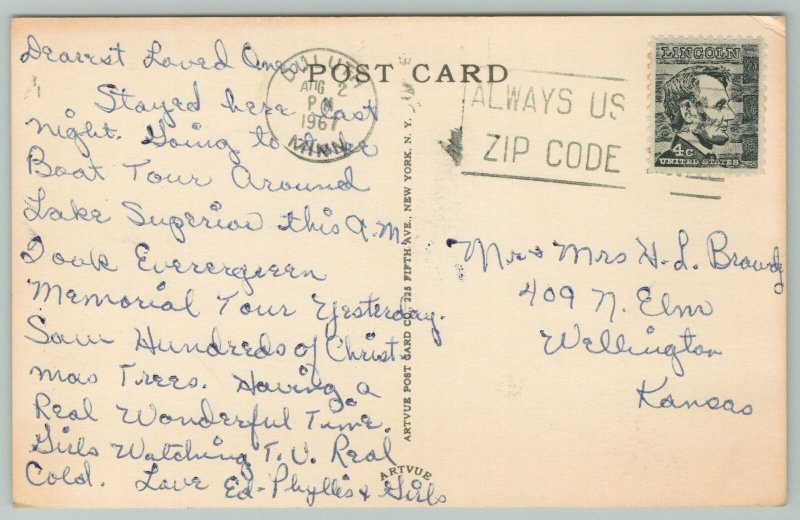 Dearest Loved One
Stayed here last
night. Going to take
Boat Tour Around
Lake Superior this A.M.
Took Evergreen
Memorial Tour Yesterday.
Saw Hundreds of Christ
mas Trees. Having a
Real Wonderful Time.
Girls Watching T.V. Real
Cold. Love Ed-Phyllis & Girls
POST CARD
DULUTH
AUG 2
PM
1967
MINN.
ALWAYS US
ZIP CODE
LINCOLN
4c
UNITED STATES
ARTVUE POST CARD CO., 225 FIFTH AVE., NEW YORK, N. Y.
ARTVUE
Mr & Mrs H. L.
409 N. Elm
Wellington
Kansas